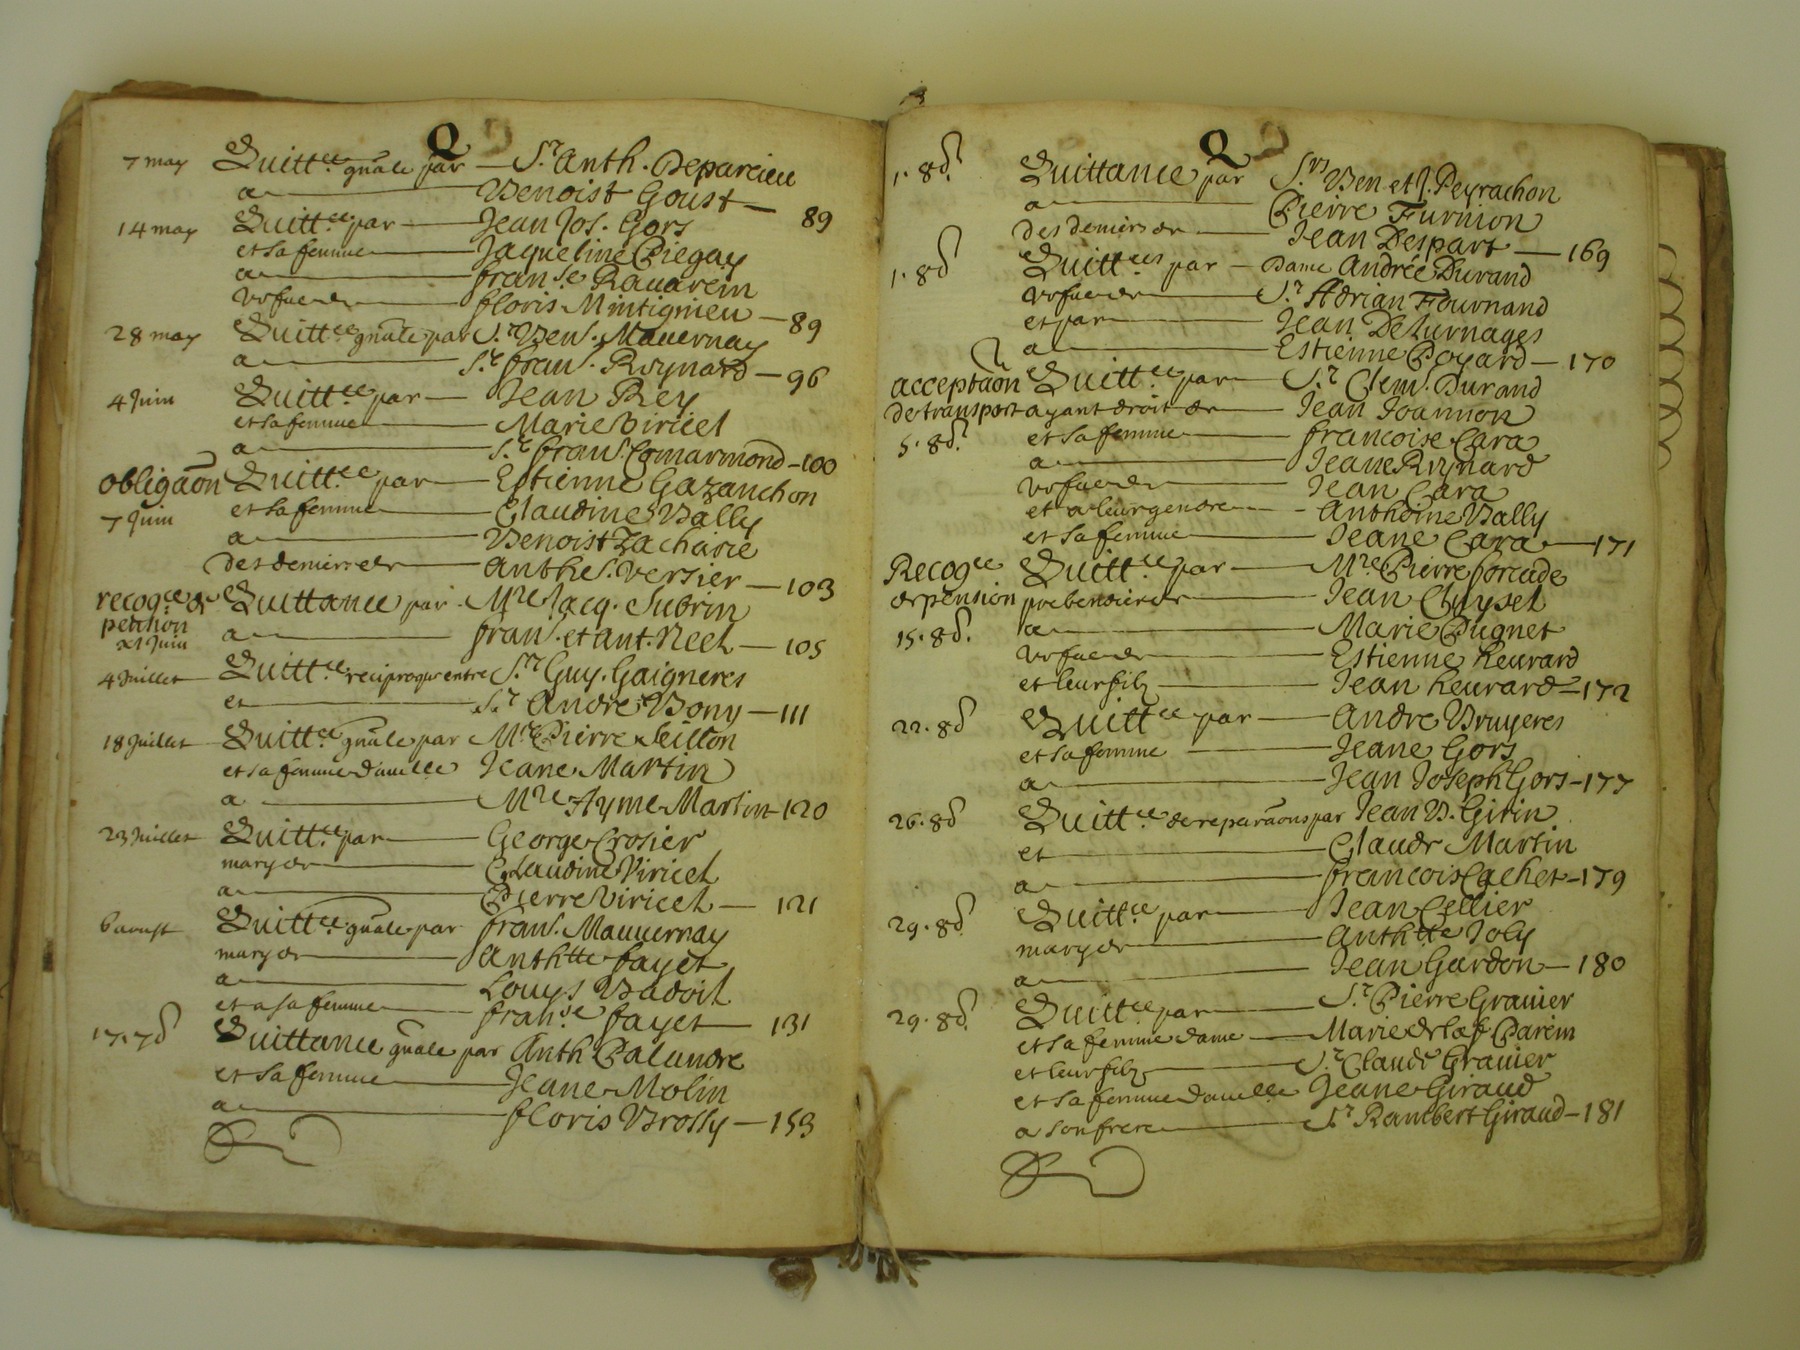 Q
7 may Quitt.ce gnãle par — S.r Anth. Depareieu
a — Benoist Goust — 89
14 may Quitt.ce par — Jean Jos. Gors
et sa femme — Jaqueline Piegay
a — fran.se Ravarein
vefue de — floris Mintignieu — 89
28 may Quitt.ce gnãle par S.r Ben. Mauernay
a — S.r fran. Reynard — 96
4 Juin Quitt.ce par — Jean Rey
et sa femme — Marie Viricel
a — S.r fran. Comarmond — 100
obligaõn Quitt.ce par — Estienne Gazanchon
7 Juin et sa femme — Claudine Bally
a — Benoist Zacharie
des deniers de — Anthe. Versier — 103
recog.ce de Quittance par Mre Jacq. Subrin
petition
21 Juin a — fran. et ant. Neel — 105
4 Juillet Quitt.ce reciproque entre S.r Guy. Gaigneres
et — S.r André Bony — 111
18 Juillet Quitt.ce gnãle par Mre Pierre Seillon
et sa femme d'amlle Jeane Martin
a — Mre Ayme Martin — 120
23 Juillet Quitt.ce par — George Crosier
mary de — Claudine Viricel
a — Pierre Viricel — 121
6 aoust Quitt.ce gnãle par fran. Mauuernay
mary de — Anthtte fayet
a — Louys Badoil
et a sa femme — fran.se fayet — 131
17. 7b. Quittance gnãle par Anth Palandre
et sa femme — Jeane Molin
a — floris Brossy — 153
Q
1. 8b. Quittance par S.rs Ben et J. Peyrachon
a — Pierre Furnion
des deniers de — Jean Despart — 169
1. 8b. Quitt.ces par — Dame Andrée Durand
vefue de — S.r Adrian Fournand
et par — Jean Deturnages
a — Estienne Boyard — 170
acceptaõn Quitt.ce par — S.r Clem. Durand
de transport ayant droit de — Jean Joannon
5. 8b. et sa femme — francoise Cara
a — Jeane Reynard
vefue de — Jean Cara
et a leur gendre — Anthoine Bally
et sa femme — Jeane Cara — 171
Recog.ce Quitt.ce par — Mre Pierre forcade
de pension prebendier de — Jean Chuysel
15. 8b. a — Marie Pugnet
vefue de — Estienne heurard
et leur filz — Jean heurard — 172
22. 8b. Quitt.ce par — Andre Bruyeres
et sa femme — Jeane Gors
a — Jean Joseph Gors — 177
26. 8b. Quitt.ce de reparaõns par Jean B. Gitin
et — Claude Martin
a — francois Cachet — 179
29. 8b. Quitt.ce par — Jean Cellier
mary de — Anthtte Joly
a — Jean Gardon — 180
29. 8b. Quitt.ce par — S.r Pierre Granier
et sa femme dame — Marie de Parein
et leur filz — S.r Claude Granier
et sa femme damlle Jeane Giraud
a son frere — S.r Rambert Giraud — 181